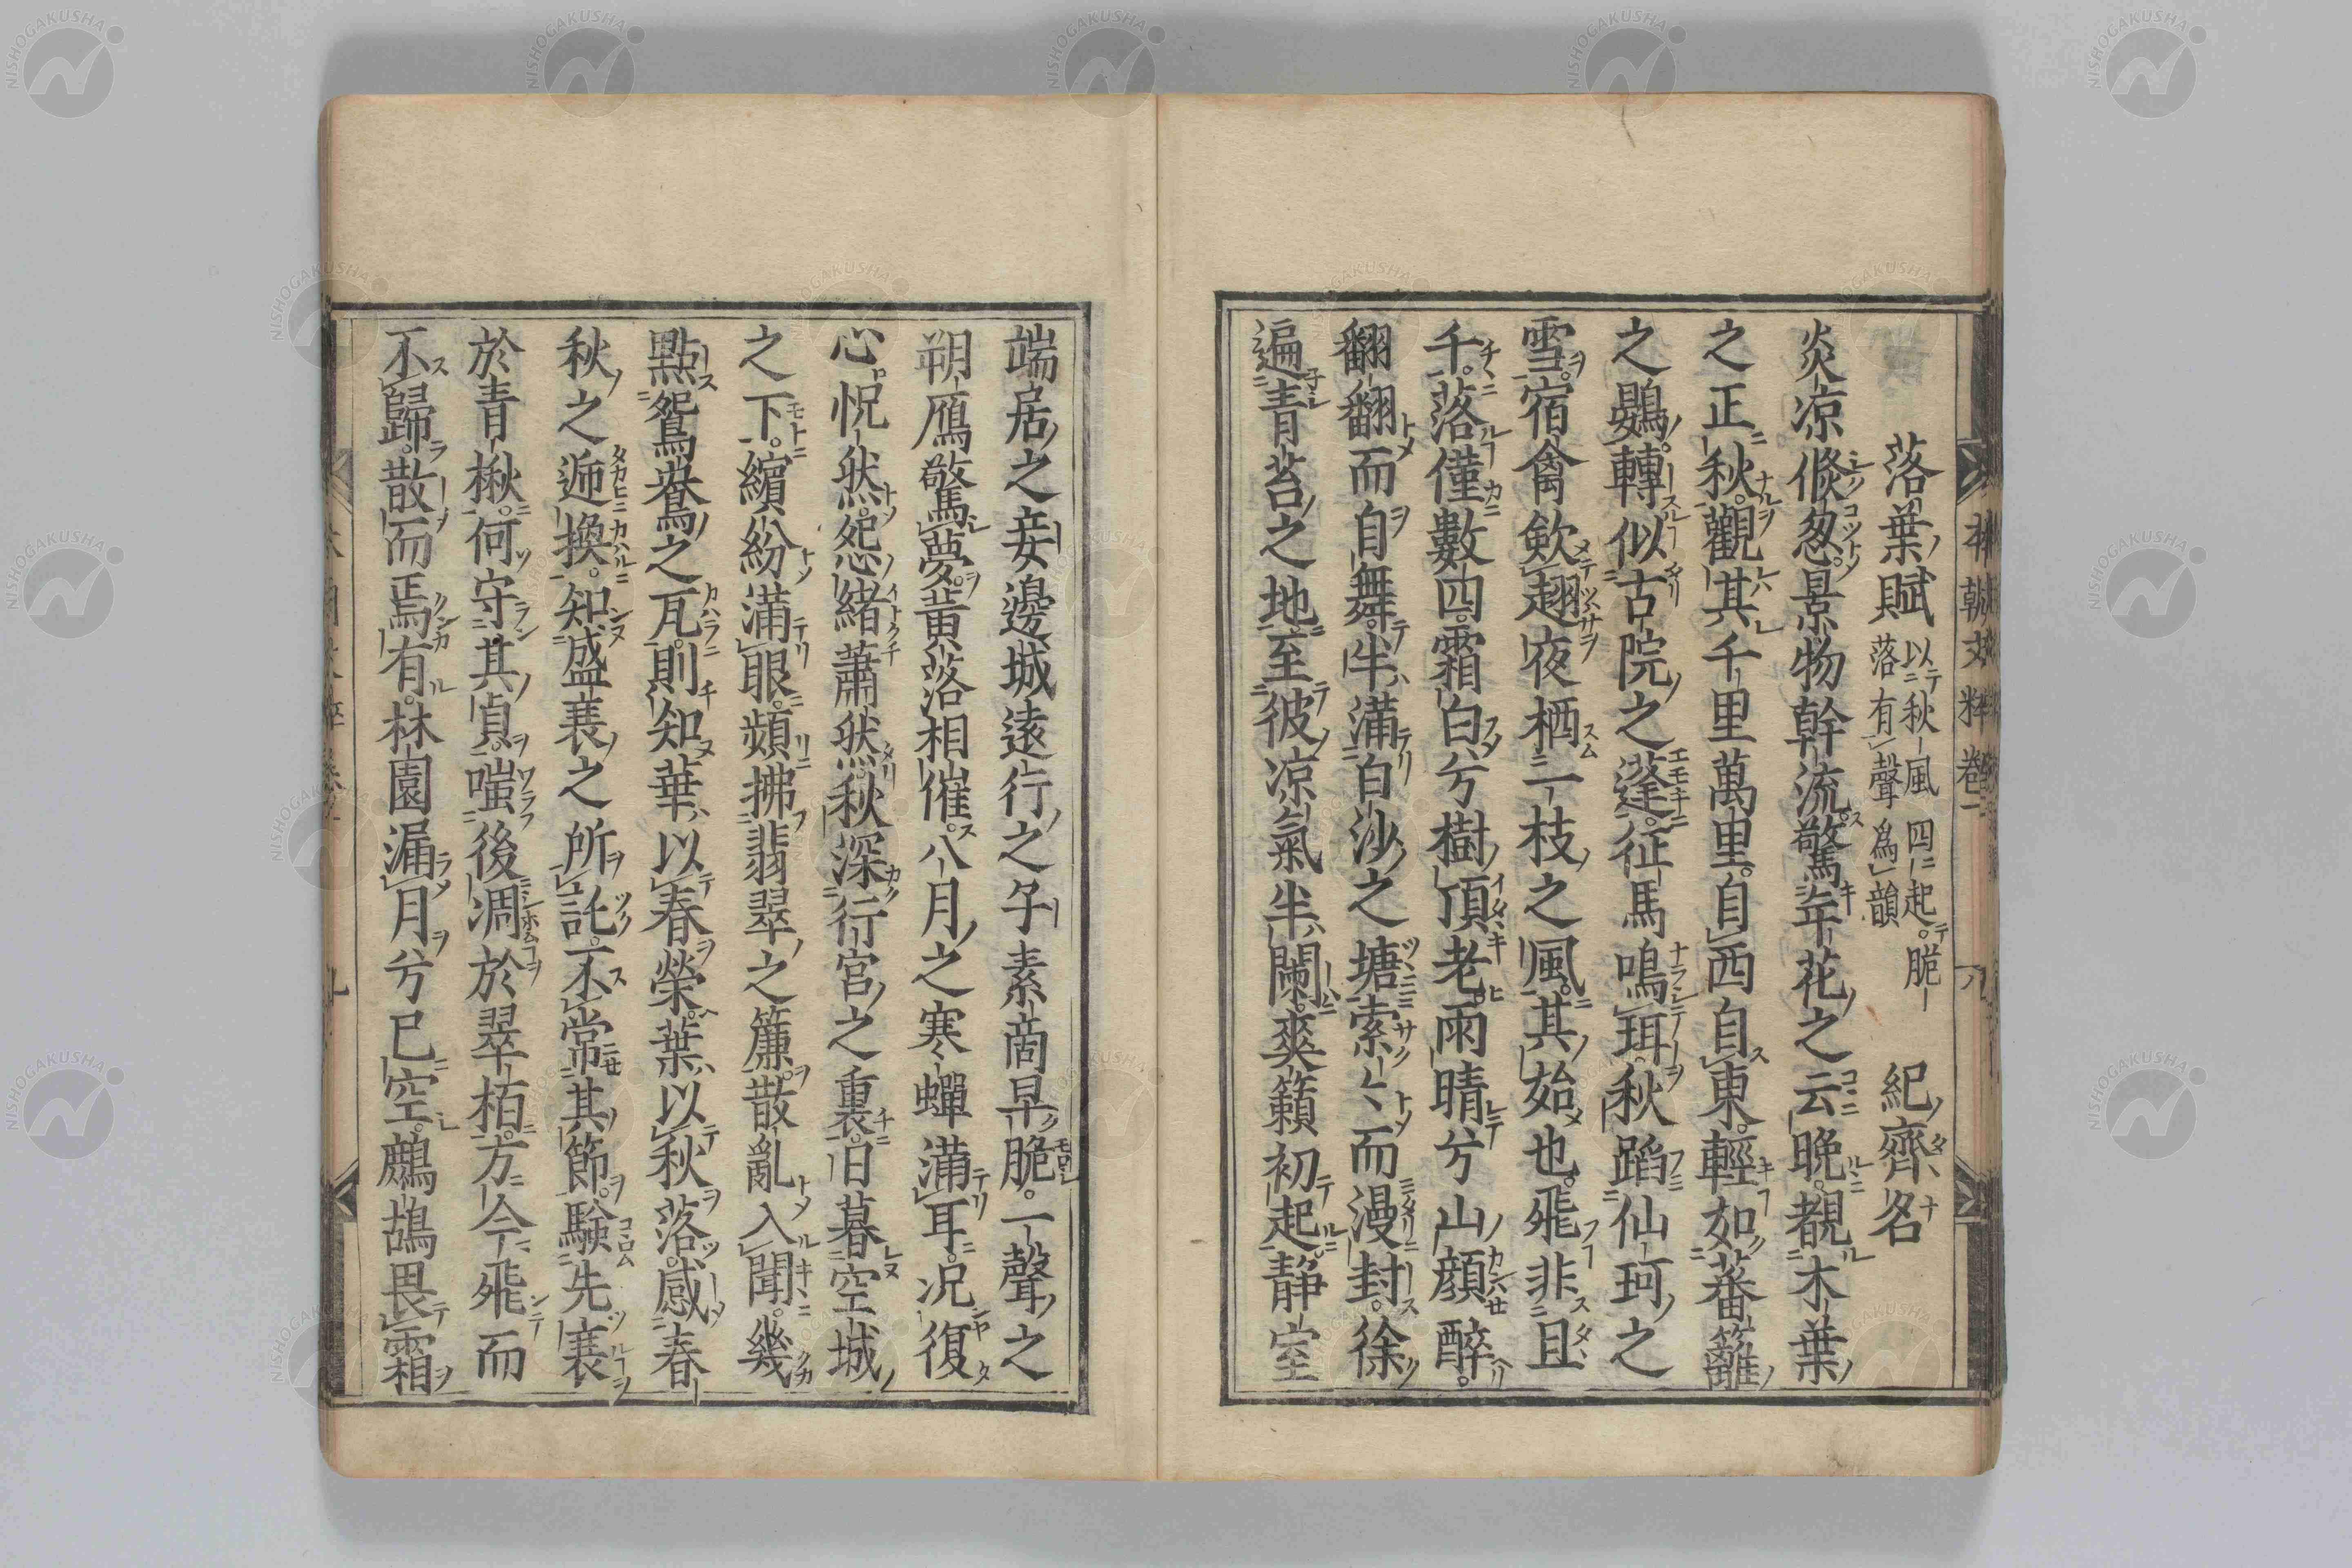 落葉賦 以秋風四起脆落有聲爲韻 紀齊名
炎凉倐忽景物幹流驚年花之云晩覩木葉
之正秋觀其千里萬里自西自東輕如蕃籬
之鷃轉似古院之蓬征馬鳴珥秋蹈仙珂之
雪宿禽欹翅夜栖一枝之風其始也飛非且
千落僅數四霜白兮樹頂老雨晴兮山顔醉
翻翻而自舞半滿白沙之塘索々而漫封徐
遍青苔之地至彼凉氣半闌爽籟初起静室
端居之妾邊城遠行之子素商早脆一聲之
朔鴈驚夢黄落相催八月之寒蟬滿耳况復
心怳然怨緒蕭然秋深行宮之裏日暮空城
之下繽紛滿眼頻拂翡翠之簾散亂入聞幾
點鴛鴦之瓦則知華以春榮葉以秋落感春
秋之逓換知盛衰之所託不常其節驗先衰
於青楸何守其貞嗤後凋於翠栢方今飛而
不歸散而焉有林園漏月兮已空鷓鴣畏霜
本朝文粹卷一 八